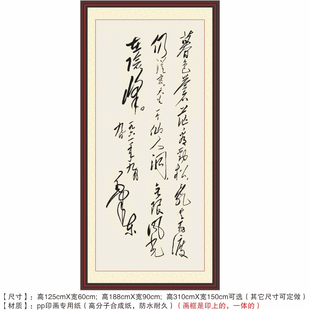 暮色苍茫看劲松 乱云飞渡
仍从容 天生一个仙人洞 无限风光
在险峰。
一九六一年九月
九日
毛泽东
【尺寸】：高125cmX宽60cm；高188cmX宽90cm；高310cmX宽150cm可选（其它尺寸可定做）
【材质】：pp印画专用纸（高分子合成纸，防水耐久）（画框是印上的，一体的）